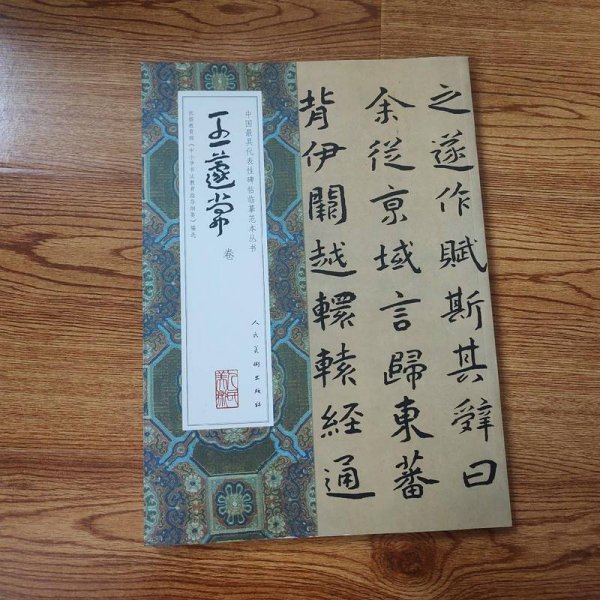 中国最具代表性碑帖临摹范本丛书
王蘧常
卷
依据教育部《中小学书法教育指导纲要》编选
人民美術出版社
之遂作賦斯其辭曰
余從京域言歸東蕃
背伊闕越轘轅經通